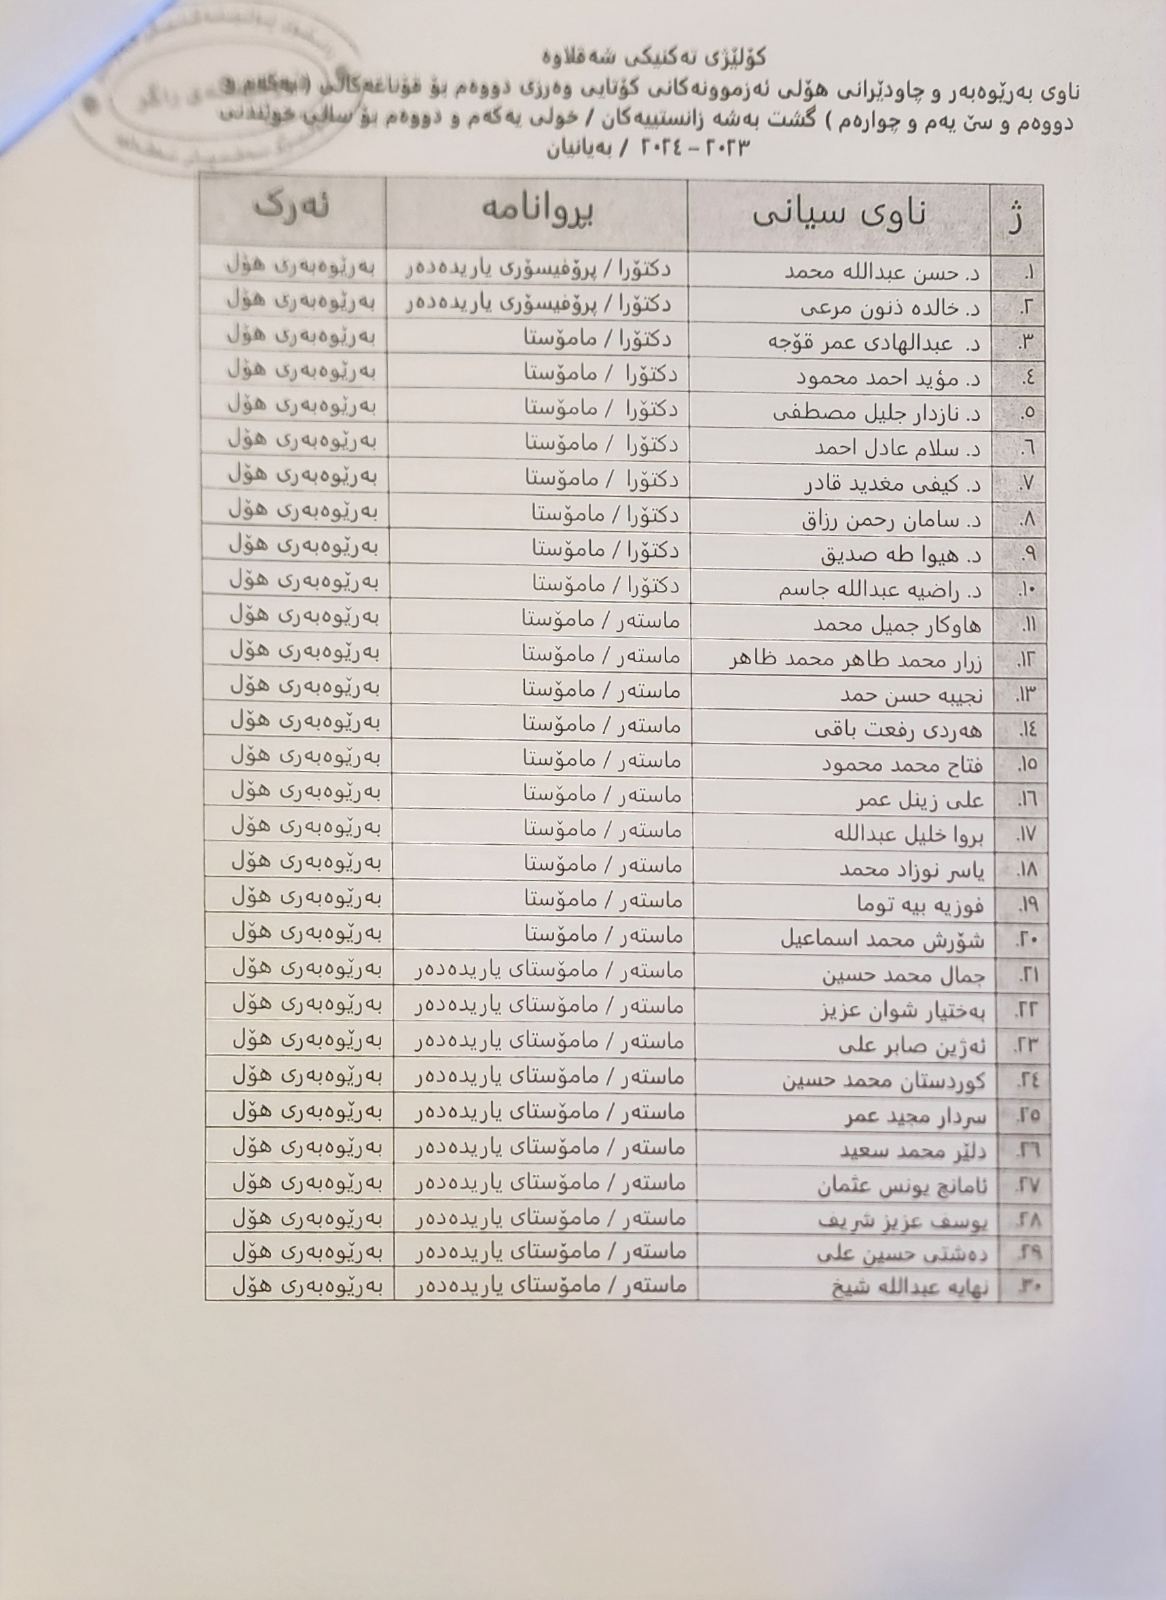 کۆلێژی تەکنیکی شەقلاوە
ناوی بەرێوەبەر و چاودێرانی هۆلی ئەزموونەکانی کۆتایی وەرزی دووەم بۆ قۆناغەکانی ( یەکەم و
دووەم و سێ یەم و چوارەم ) گشت بەشە زانستییەکان / خولی یەکەم و دووەم بۆ سالی خولندنی
٢٠٢٣ – ٢٠٢٤ / بەیانیان
ژ ناوی سیانی بروانامە ئەرک
١. د. حسن عبدالله محمد دکتۆرا / پرۆفیسۆری یاریدەدەر بەرێوەبەری هۆل
٢. د. خالدە ذنون مرعی دکتۆرا / پرۆفیسۆری یاریدەدەر بەرێوەبەری هۆل
٣. د. عبدالهادی عمر قۆجە دکتۆرا / مامۆستا بەرێوەبەری هۆل
٤. د. مؤید احمد محمود دکتۆرا / مامۆستا بەرێوەبەری هۆل
٥. د. نازدار جلیل مصطفی دکتۆرا / مامۆستا بەرێوەبەری هۆل
٦. د. سلام عادل احمد دکتۆرا / مامۆستا بەرێوەبەری هۆل
٧. د. کیفی مغدید قادر دکتۆرا / مامۆستا بەرێوەبەری هۆل
٨. د. سامان رحمن رزاق دکتۆرا / مامۆستا بەرێوەبەری هۆل
٩. د. هیوا طه صدیق دکتۆرا / مامۆستا بەرێوەبەری هۆل
١٠. د. راضیه عبدالله جاسم دکتۆرا / مامۆستا بەرێوەبەری هۆل
١١. هاوکار جمیل محمد ماستەر / مامۆستا بەرێوەبەری هۆل
١٢. زرار محمد طاهر محمد ظاهر ماستەر / مامۆستا بەرێوەبەری هۆل
١٣. نجیبه حسن حمد ماستەر / مامۆستا بەرێوەبەری هۆل
١٤. هەردی رفعت باقی ماستەر / مامۆستا بەرێوەبەری هۆل
١٥. فتاح محمد محمود ماستەر / مامۆستا بەرێوەبەری هۆل
١٦. علی زینل عمر ماستەر / مامۆستا بەرێوەبەری هۆل
١٧. بروا خلیل عبدالله ماستەر / مامۆستا بەرێوەبەری هۆل
١٨. یاسر نوزاد محمد ماستەر / مامۆستا بەرێوەبەری هۆل
١٩. فوزیه بیه توما ماستەر / مامۆستا بەرێوەبەری هۆل
٢٠. شۆرش محمد اسماعیل ماستەر / مامۆستا بەرێوەبەری هۆل
٢١. جمال محمد حسین ماستەر / مامۆستای یاریدەدەر بەرێوەبەری هۆل
٢٢. بەختیار شوان عزیز ماستەر / مامۆستای یاریدەدەر بەرێوەبەری هۆل
٢٣. ئەژین صابر علی ماستەر / مامۆستای یاریدەدەر بەرێوەبەری هۆل
٢٤. کوردستان محمد حسین ماستەر / مامۆستای یاریدەدەر بەرێوەبەری هۆل
٢٥. سردار مجید عمر ماستەر / مامۆستای یاریدەدەر بەرێوەبەری هۆل
٢٦. دلێر محمد سعید ماستەر / مامۆستای یاریدەدەر بەرێوەبەری هۆل
٢٧. ئامانج یونس عثمان ماستەر / مامۆستای یاریدەدەر بەرێوەبەری هۆل
٢٨. یوسف عزیز شریف ماستەر / مامۆستای یاریدەدەر بەرێوەبەری هۆل
٢٩. دەشتی حسین علی ماستەر / مامۆستای یاریدەدەر بەرێوەبەری هۆل
٣٠. نهایه عبدالله شیخ ماستەر / مامۆستای یاریدەدەر بەرێوەبەری هۆل